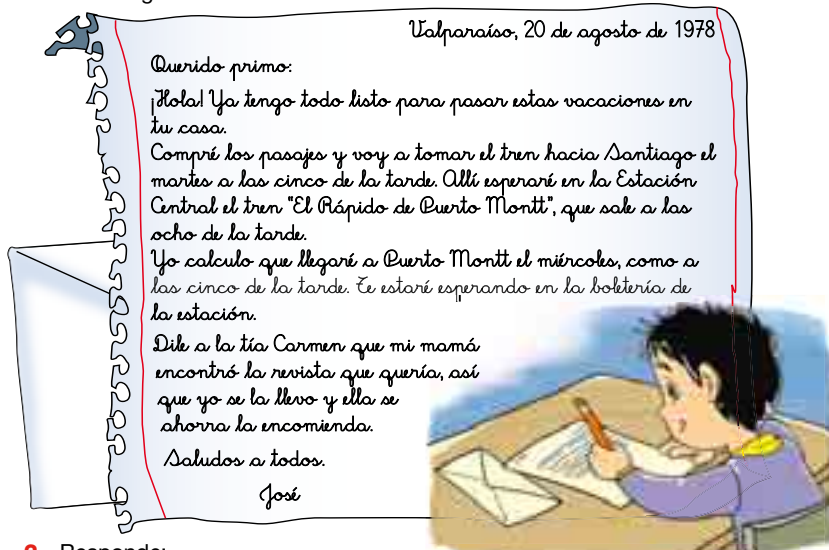 Valparaíso, 20 de agosto de 1978
Querido primo:
¡Hola! Ya tengo todo listo para pasar estas vacaciones en
tu casa.
Compré los pasajes y voy a tomar el tren hacia Santiago el
martes a las cinco de la tarde. Allí esperaré en la Estación
Central el tren "El Rápido de Puerto Montt", que sale a las
ocho de la tarde.
Yo calculo que llegaré a Puerto Montt el miércoles, como a
las cinco de la tarde. Te estaré esperando en la boletería de
la estación.
Dile a la tía Carmen que mi mamá
encontró la revista que quería, así
que yo se la llevo y ella se
ahorra la encomienda.
Saludos a todos.
José